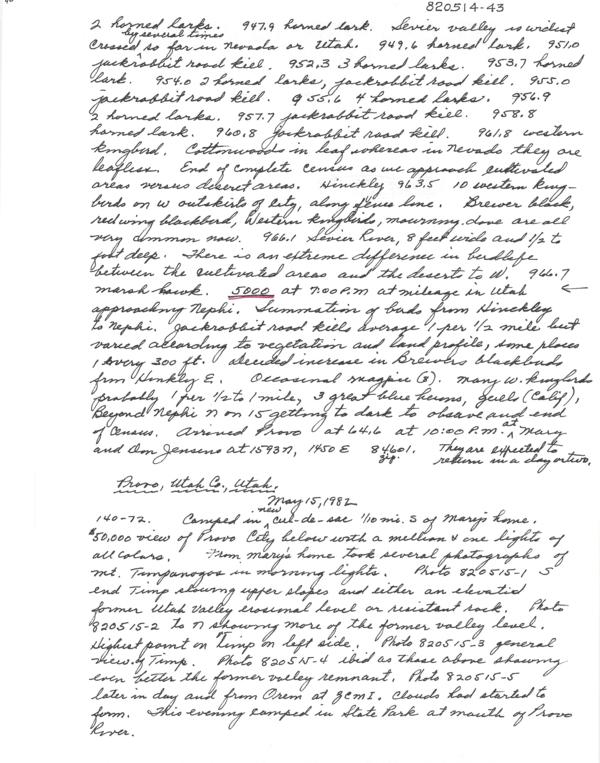 820514-43
2 horned larks. 947.9 horned lark. Sevier valley is widest
by several times
crossed so far in Nevada or Utah. 949.6 horned lark. 951.0
jackrabbit road kill. 952.3 3 horned larks. 953.7 horned
lark. 954.0 2 horned larks, jackrabbit road kill. 955.0
jackrabbit road kill. 955.6 4 horned larks. 956.9
2 horned larks. 957.7 jackrabbit road kill. 958.8
horned lark. 960.8 Jackrabbit road kill. 961.8 western
kingbird. Cottonwoods in leaf whereas in Nevada they are
leafless. End of complete census as we approach cultivated
areas versus desert areas. Hinckley 963.5 10 western king-
birds on W outskirts of city, along fence line. Brewer black,
redwing blackbird, Western kingbirds, mourning dove are all
very common now. 966.1 Sevier River, 8 feet wide and 1/2 to
foot deep. There is an extreme difference in birdlife
between the cultivated areas and the desert to W. 966.7
marsh hawk. 5000 at 7:00 P.M at mileage in Utah ←
approaching Nephi. Summation of birds from Hinckley
to Nephi. Jackrabbit road kills average 1 per 1/2 mile but
varied according to vegetation and land profile, some places
1 every 300 ft. Decided increase in Brewers blackbirds
from Hinkley E. Occasional magpie (3). Many W. kingbirds
probably 1 per 1/2 to 1 mile, 3 great blue herons, gulls (Calif),
Beyond Nephi N on 15 getting to dark to observe and end
of Census. Arrived Provo at 64.6 at 10:00 P.M. at Mary
and Don Jensens at 1593 N, 1450 E 84601. They are expected to
zip. return in a day or two.
Provo, Utah Co., Utah.
May 15, 1982
new
140-72. Camped in cul-de-sac 1/10 mi. S of Mary's home.
$50,000 view of Provo City below with a million & one lights of
all colors. From Mary's home took several photographs of
Mt. Timpanogos in morning lights. Photo 820515-1 S
end Timp showing upper slopes and either an elevated
former Utah Valley erosional level or resistant rock. Photo
820515-2 to N showing more of the former valley level.
Highest point on Timp on left side. Photo 820515-3 general
view of Timp. Photo 820515-4 ibid as those above showing
even better the former valley remnant. Photo 820515-5
later in day and from Orem at ZCMI. Clouds had started to
form. This evening camped in State Park at mouth of Provo
River.